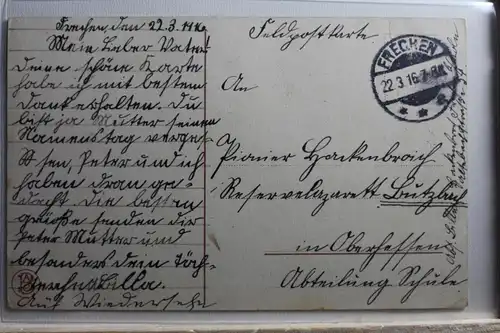 Frechen, den 22.3.1916
Mein lieber Vater
deine schöne Karte
habe ich mit bestem
Dank erhalten. Du
bist ja Mutter seinen
Namenstag verges-
sen, Peter und ich
haben dran ge-
dacht. Die besten
Grüße senden dir
Peter Mutter und
besonders dein Töch-
terchen Billa.
Auf Wiedersehn
Feldpostkarte
FRECHEN
22.3.16.7-8N
An
Pionier Hackenbroich
Reservelazarett Butzbach
in Oberhessen
Abteilung Schule